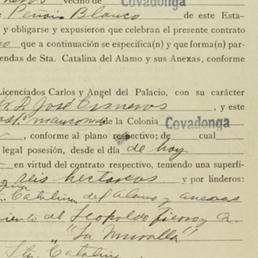 vecino de Covadonga
Peñón Blanco de este Esta-
y obligarse y expusieron que celebran el presente contrato
que a continuación se especifica(n) y que forma(n) par-
endas de Sta. Catalina del Alamo y sus Anexas, conforme
Licenciados Carlos y Angel del Palacio, con su carácter
José Cisneros, y este
de la Colonia Covadonga
, conforme al plano respectivo; de cual
legal posesión, desde el día de hoy
en virtud del contrato respectivo, teniendo una superfi-
seis hectareas y por linderos:
Catalina del Alamo y anexas
Leopoldo Fierro
"La Muralla"
Sta. Catalina